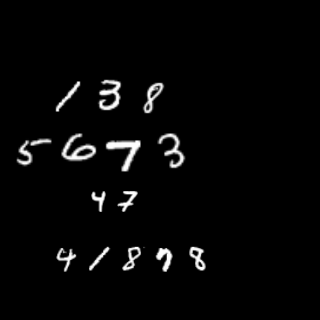 138
5673
47
41878